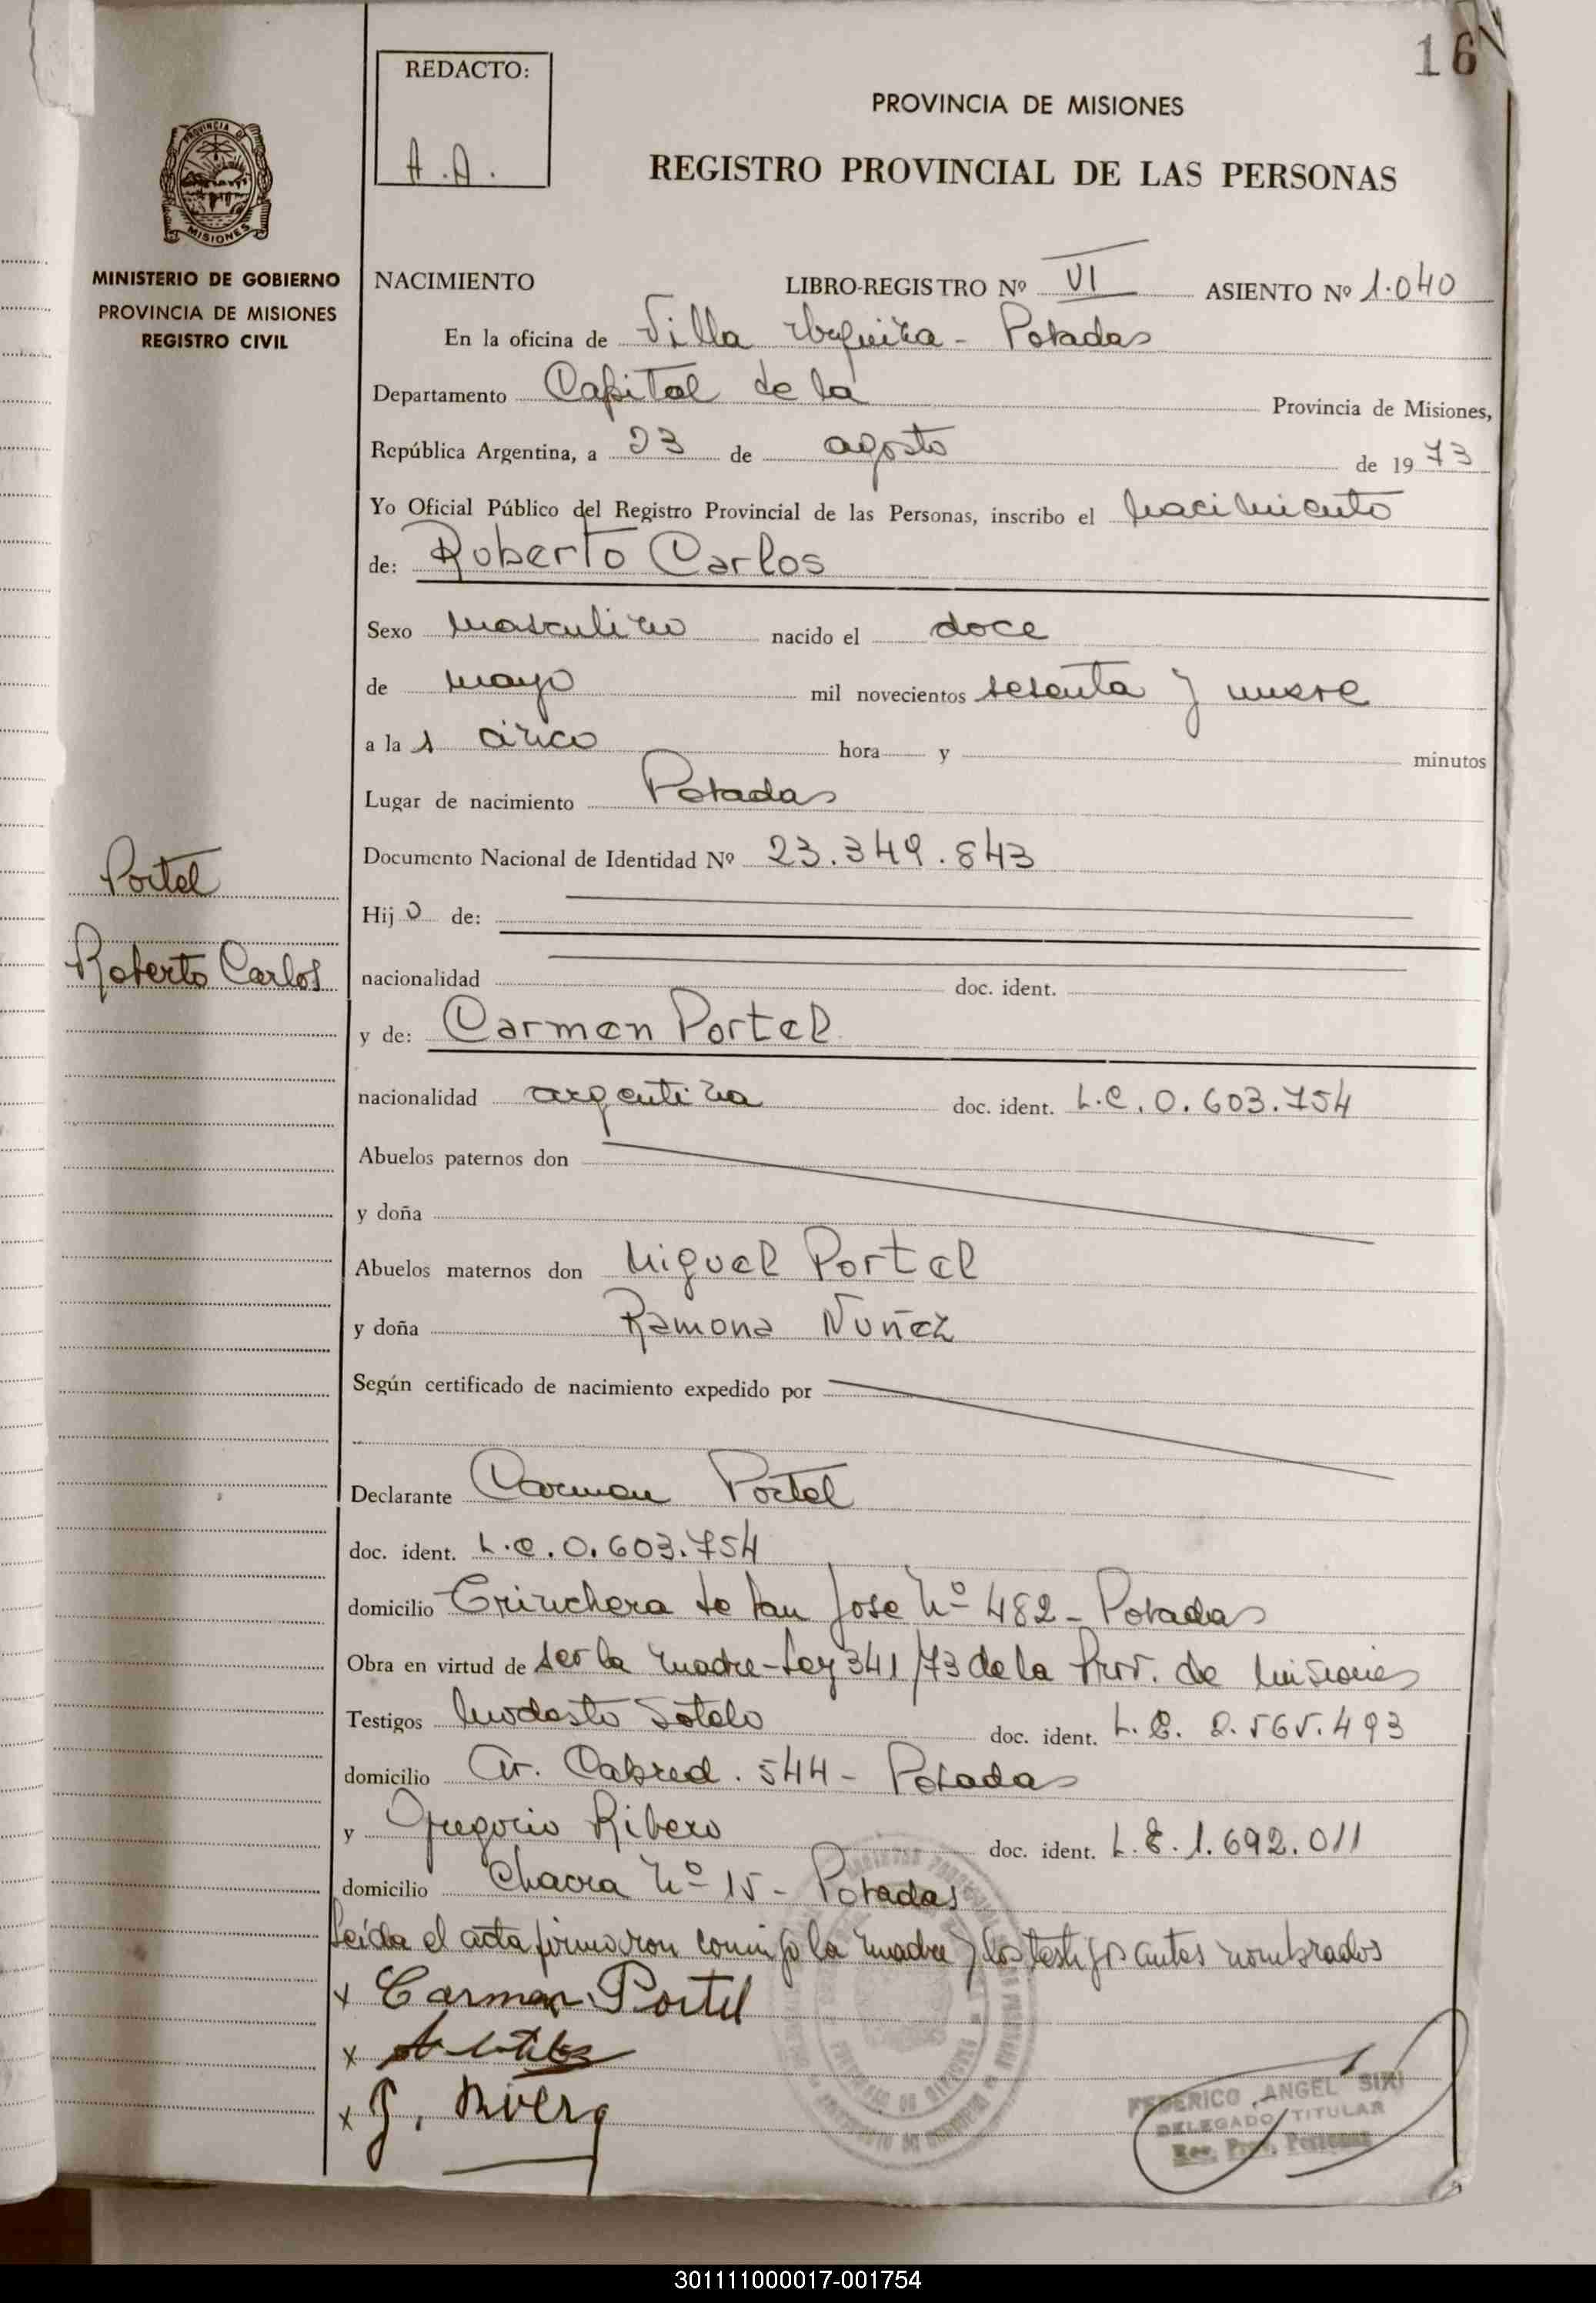 16
REDACTO:
A.A.
PROVINCIA DE MISIONES
REGISTRO PROVINCIAL DE LAS PERSONAS
PROVINCIA DE
MISIONES
MINISTERIO DE GOBIERNO
PROVINCIA DE MISIONES
REGISTRO CIVIL
NACIMIENTO LIBRO-REGISTRO Nº VI ASIENTO Nº 1.040
En la oficina de Villa Urquiza - Posadas
Departamento Capital de la Provincia de Misiones,
República Argentina, a 23 de agosto de 1973
Yo Oficial Público del Registro Provincial de las Personas, inscribo el nacimiento
de: Roberto Carlos
Sexo masculino nacido el doce
de mayo mil novecientos sesenta y nueve
a la s cinco hora y minutos
Lugar de nacimiento Posadas
Documento Nacional de Identidad Nº 23.349.843
Portel
Hijo de:
Roberto Carlos
nacionalidad doc. ident.
y de: Carmen Portel
nacionalidad argentina doc. ident. L.C. 0.603.754
Abuelos paternos don
y doña
Abuelos maternos don Miguel Portel
y doña Ramona Nuñez
Según certificado de nacimiento expedido por
Declarante Carmen Portel
doc. ident. L.C. 0.603.754
domicilio Trinchera de San Jose Nº 482 - Posadas
Obra en virtud de ser la madre - Ley 341/73 de la Prov. de Misiones
Testigos Modesto Sotelo doc. ident. L.E. 2.565.493
domicilio Av. Cabred. 544 - Posadas
y Gregorio Ribero doc. ident. L.E. 1.692.011
domicilio Chacra Nº 15 - Posadas
Leída el acta firmaron conmigo la madre y los testigos antes nombrados
x Carmen Portel
x
x G. Rivero
FEDERICO ANGEL SIRI
DELEGADO TITULAR
Reg. Prov. Personas
301111000017-001754